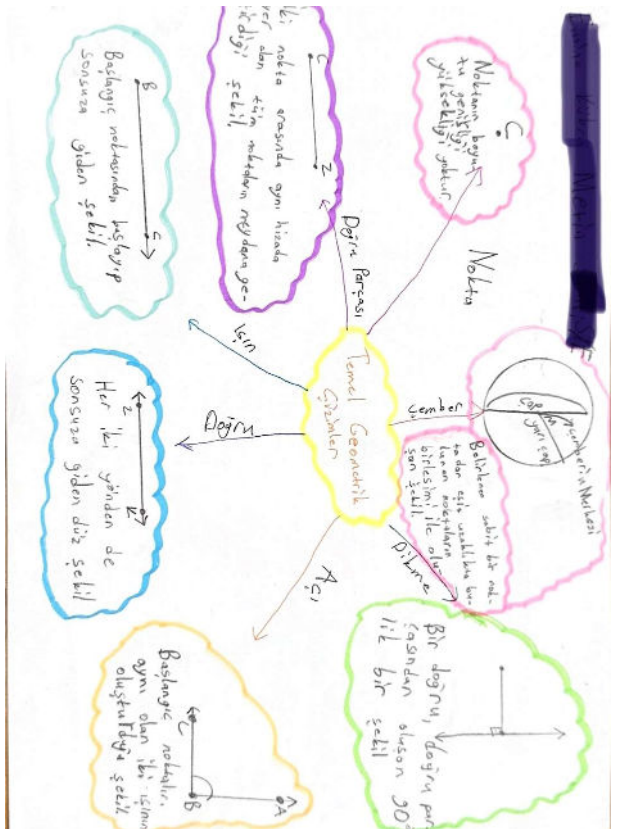 Temel Geometrik
Çizimler
Nokta
C
Noktanın boyu
genişliği
yüksekliği yoktur
Doğru Parçası
C
Z
iki nokta arasında aynı hizada
yer alan tüm noktaların meydana ge-
tirdiği şekil.
Işın
B
C
Başlangıç noktasından başlayıp
sonsuza giden şekil.
Doğru
Z
K
Her iki yönden de
sonsuza giden düz şekil
Açı
A
B
C
Başlangıç noktaları
aynı olan iki ışının
oluşturduğu şekil
Dikme
Bir doğru, doğru par
çasından oluşan 90°
lik bir şekil
Çember
Çemberin Merkezi
Çap
yarıçap
Belirlenen sabit bir nok-
tadan eşit uzaklıkta bu-
lunan noktaların
birleşimi ile olu-
şan şekil.